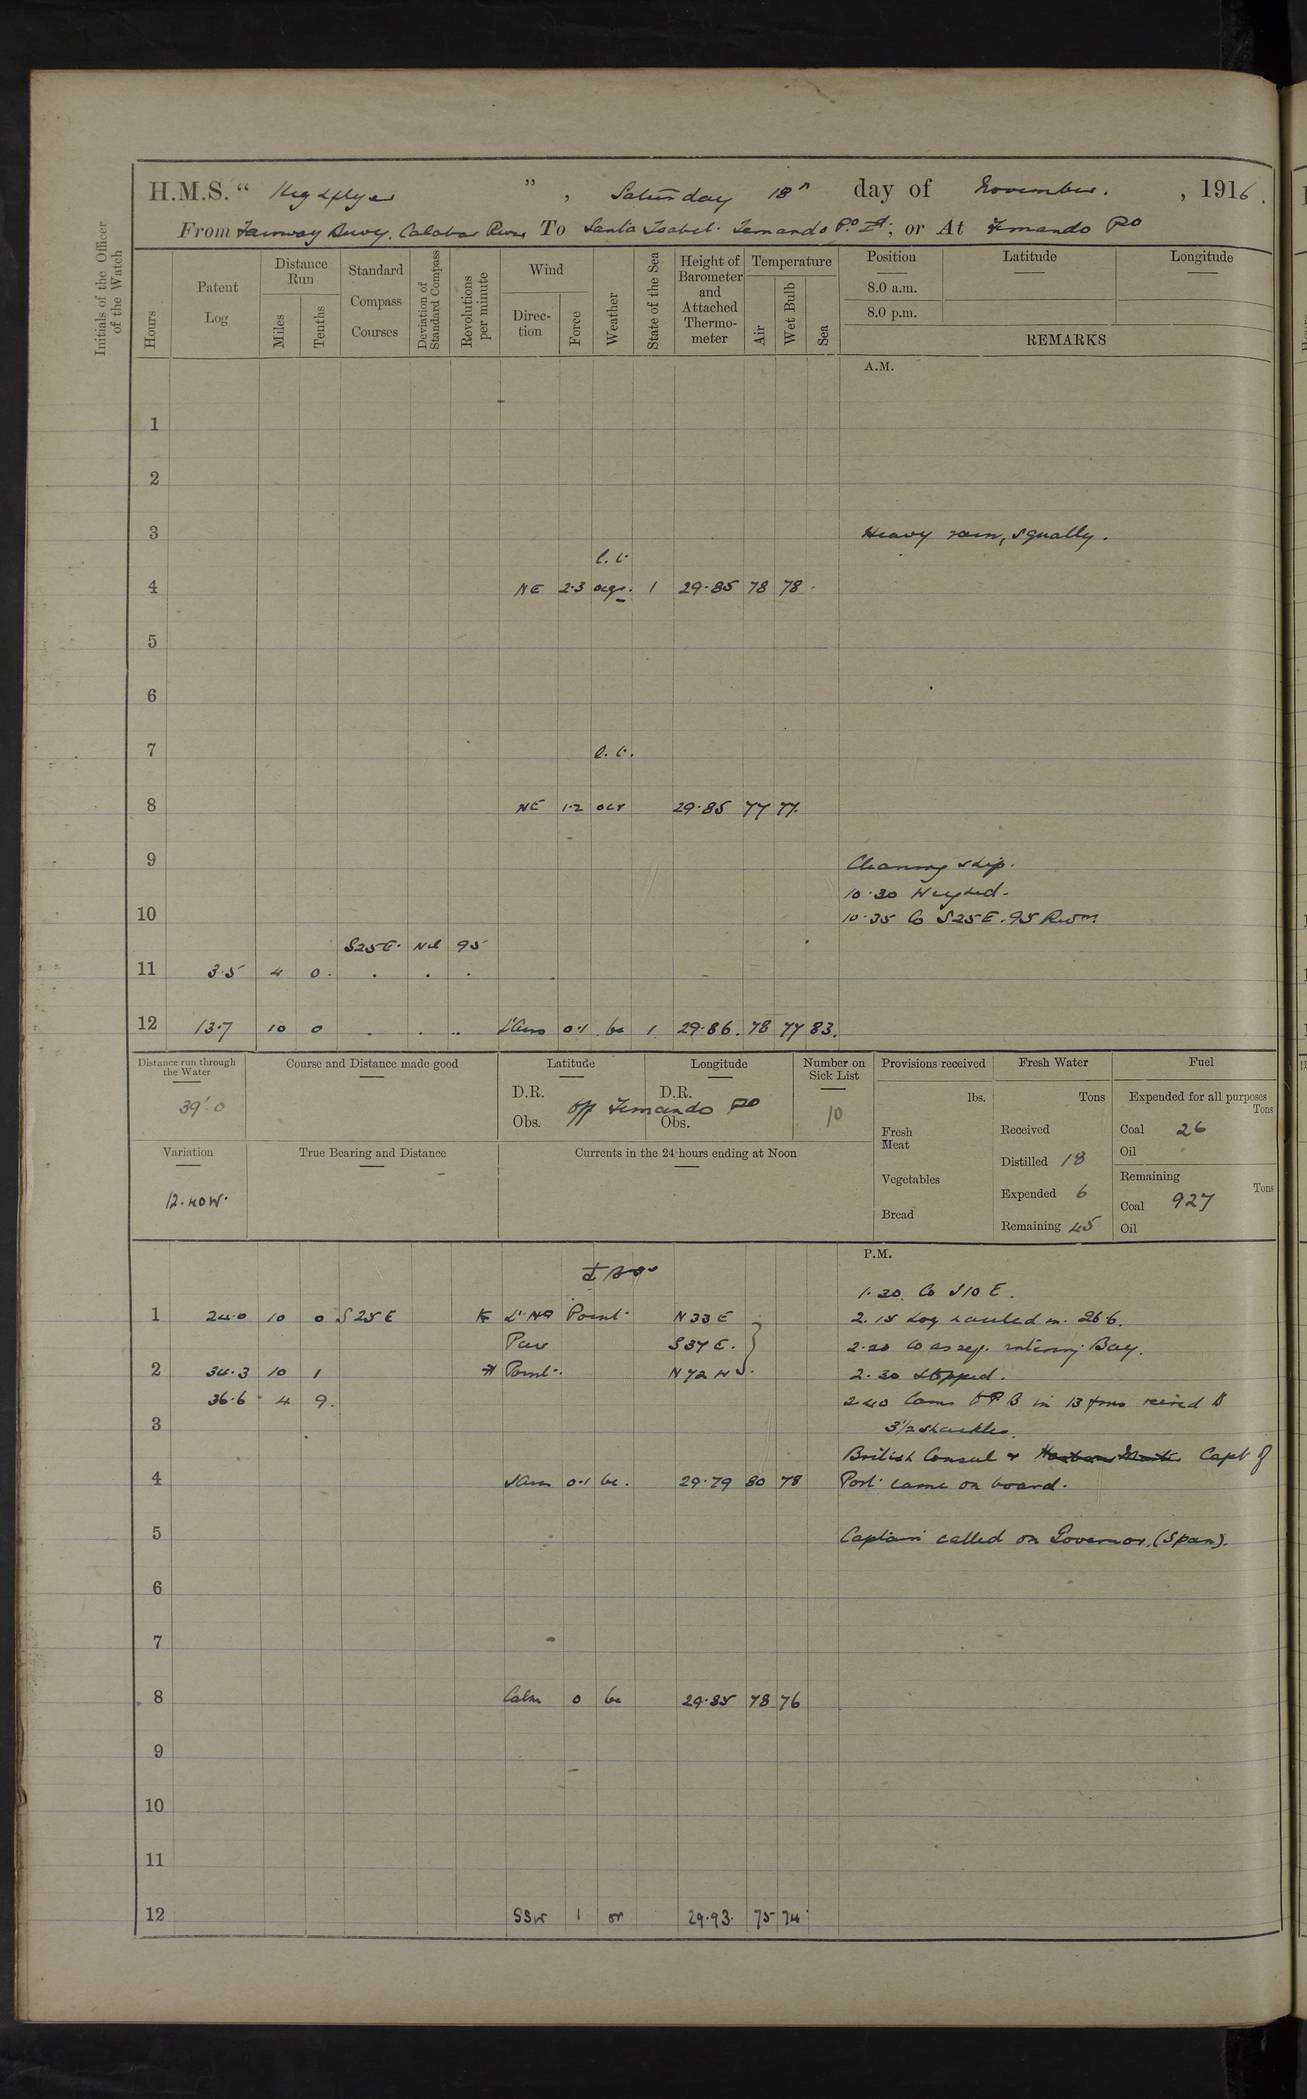 H.M.S. “ Highflyer ”, Saturday 18th day of November. , 1916.
From Fairway Buoy. Calabar River To Santa Isabel. Fernando Po Id; or At Fernando Po
Initials of the Officer of the Watch
Hours
Patent Log
Distance Run
Miles
Tenths
Standard Compass Courses
Deviation of Standard Compass
Revolutions per minute
Wind
Direction
Force
Weather
State of the Sea
Height of Barometer and Attached Thermometer
Temperature
Air
Wet Bulb
Sea
Position
8.0 a.m.
8.0 p.m.
Latitude
Longitude
REMARKS
A.M.
1
2
3 Heavy rain, squally.
l.t.
4 NE 2.3 ocqr. 1 29.85 78 78
5
6
7
l.t.
8 NE 1.2 ocr 29.85 77 77
9 Cleaning ship.
10.30 Weighed.
10 10.35 Co S25E. 95 Revns
S25E. Nil 95
11 3.5 4 0 . . .
12 13.7 10 0 . . .. L'Airs 0.1 bc 1 29.86 78 77 83.
Distance run through the Water
39'.0
Course and Distance made good
Latitude
D.R.
Obs.
Longitude
D.R.
Obs.
Off Fernando Po
Number on Sick List
10
Provisions received
lbs.
Fresh Meat
Vegetables
Bread
Fresh Water
Tons
Received
Distilled 18
Expended 6
Remaining 45
Fuel
Expended for all purposes
Tons
Coal 26
Oil
Remaining
Tons
Coal 927
Oil
Variation
12.40W.
True Bearing and Distance
Currents in the 24 hours ending at Noon
P.M.
1.20. Co S10E.
1 24.0 10 0 S25E Point N33E 2.15 Log hauled in. 36.6.
S37E. 2.20 Co as req. entering Bay.
2 34.3 10 1 Point. N72W 2.30 Stopped.
36.6 4 9. 2.40 Came to P.B in 13 fms veered to
3 3½ shackles.
British Consul & Harbour Master Capt of
4 L'Airs 0.1 bc. 29.79 80 78 Port came on board.
5 Captain called on Governor. (Span).
6
7
8 Calm 0 bc 29.85 78 76
9
10
11
12 SSW 1 or 29.93 75 74